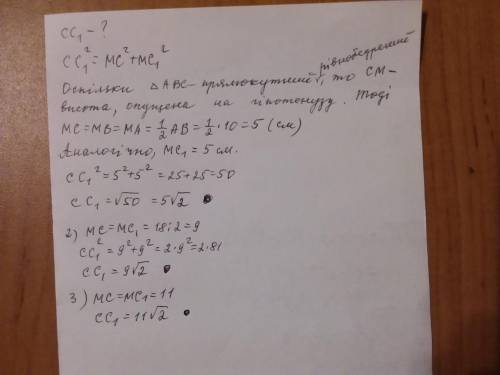 CC₁ - ?
CC₁² = MC² + MC₁²
Оскільки △ABC - прямокутний рівнобедрений, то CM -
висота, опущена на гіпотенузу. Тоді
MC = MB = MA = 1/2 AB = 1/2 · 10 = 5 (см)
Аналогічно, MC₁ = 5 см.
CC₁² = 5² + 5² = 25 + 25 = 50
CC₁ = √50 = 5√2
2) MC = MC₁ = 18 : 2 = 9
CC₁² = 9² + 9² = 2 · 9² = 2 · 81
CC₁ = 9√2
3) MC = MC₁ = 11
CC₁ = 11√2